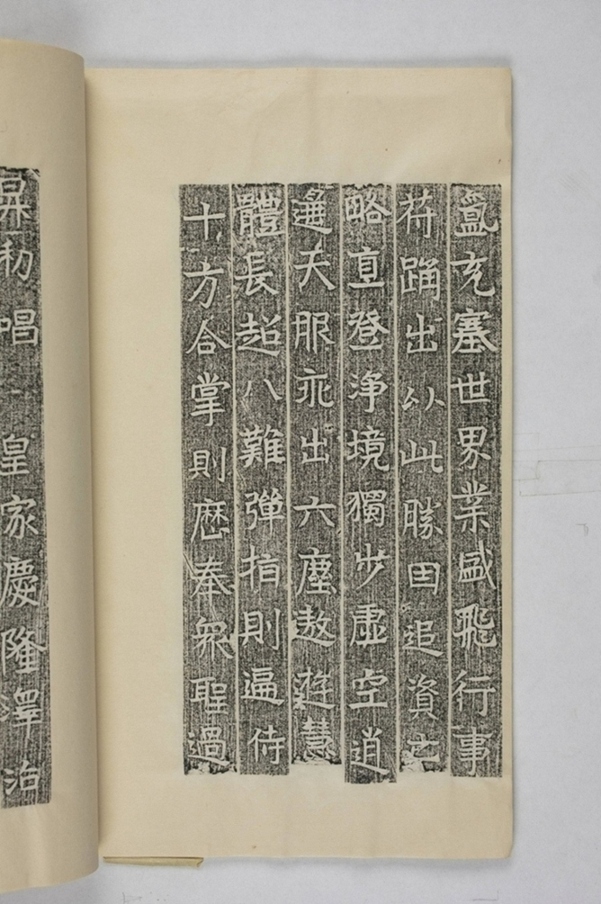 氳充塞世界業盛飛行事
符踊出以此勝因追資亡
略直登淨境獨步虛空逍
遥天服乖出六塵遨遊慧
體長超八難彈指則遍侍
十方合掌則歷奉眾聖過
昇初唱一皇家慶隆澤治